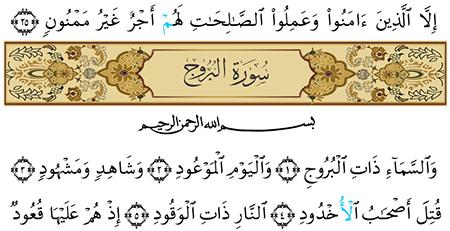 إِلَّا الَّذِينَ ءَامَنُوا۟ وَعَمِلُوا۟ الصَّـٰلِحَـٰتِ لَهُمْ أَجْرٌ غَيْرُ مَمْنُونٍۭ ﴿٢٥﴾
سُورَةُ البُرُوجِ
بسم الله الرحمن الرحيم
وَالسَّمَآءِ ذَاتِ الْبُرُوجِ ﴿١﴾ وَالْيَوْمِ الْمَوْعُودِ ﴿٢﴾ وَشَاهِدٍ وَمَشْهُودٍ ﴿٣﴾
قُتِلَ أَصْحَـٰبُ الْأُخْدُودِ ﴿٤﴾ النَّارِ ذَاتِ الْوَقُودِ ﴿٥﴾ إِذْ هُمْ عَلَيْهَا قُعُودٌ